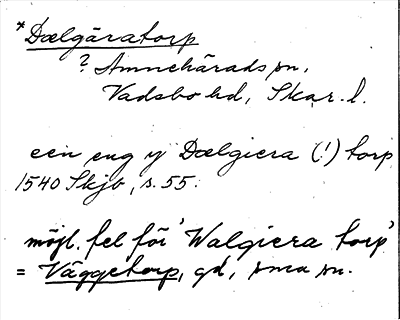 * Dælgäratorp
? Amnehärads sn.
Vadsbo hd, Skar. l.
een eng y Dælgiera (!) torp
1540 Skjb, s. 55.
möjl. fel för 'Walgiera torp'
= Väggetorp, gd, sma sn.